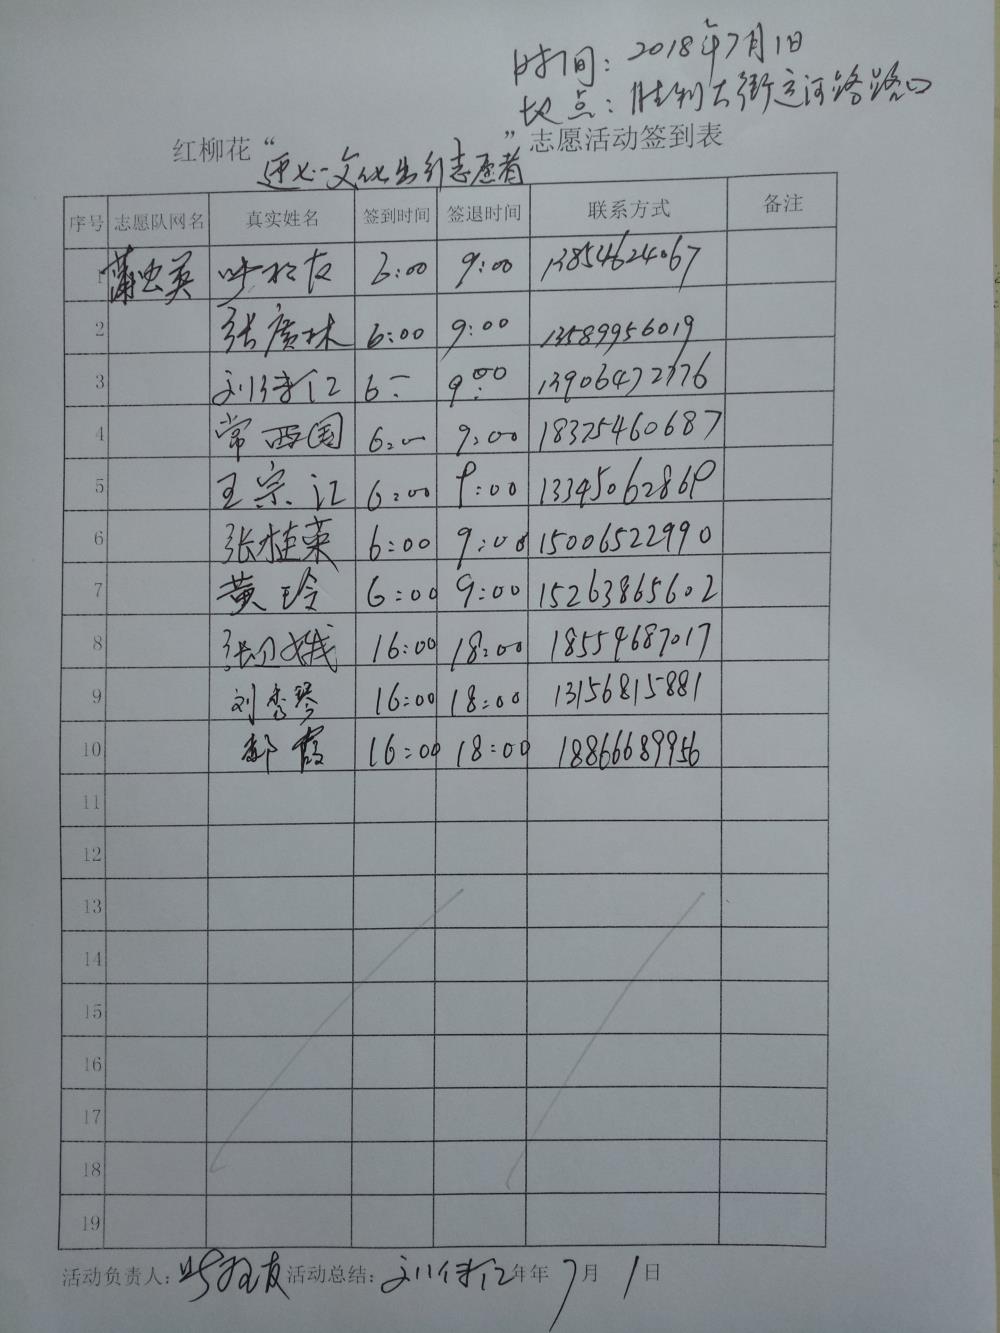 时间：2018年7月1日
地点：胜利大街运河路路口
红柳花“迎七一文化出行志愿者”志愿活动签到表
序号 志愿队网名 真实姓名 签到时间 签退时间 联系方式 备注
1 6:00 9:00 13854624067
2 张广林 6:00 9:00 13589956019
3 6:— 9:00 13906472776
4 常西国 6:00 9:00 18325460687
5 王宗江 6:00 9:00 13345062869
6 张桂荣 6:00 9:00 15006522990
7 黄玲 6:00 9:00 15263865602
8 张卫娥 16:00 18:00 18554687017
9 刘秀琴 16:00 18:00 13156815881
10 郝霞 16:00 18:00 18866689956
11
12
13
14
15
16
17
18
19
活动负责人： 活动总结： 年年7月1日